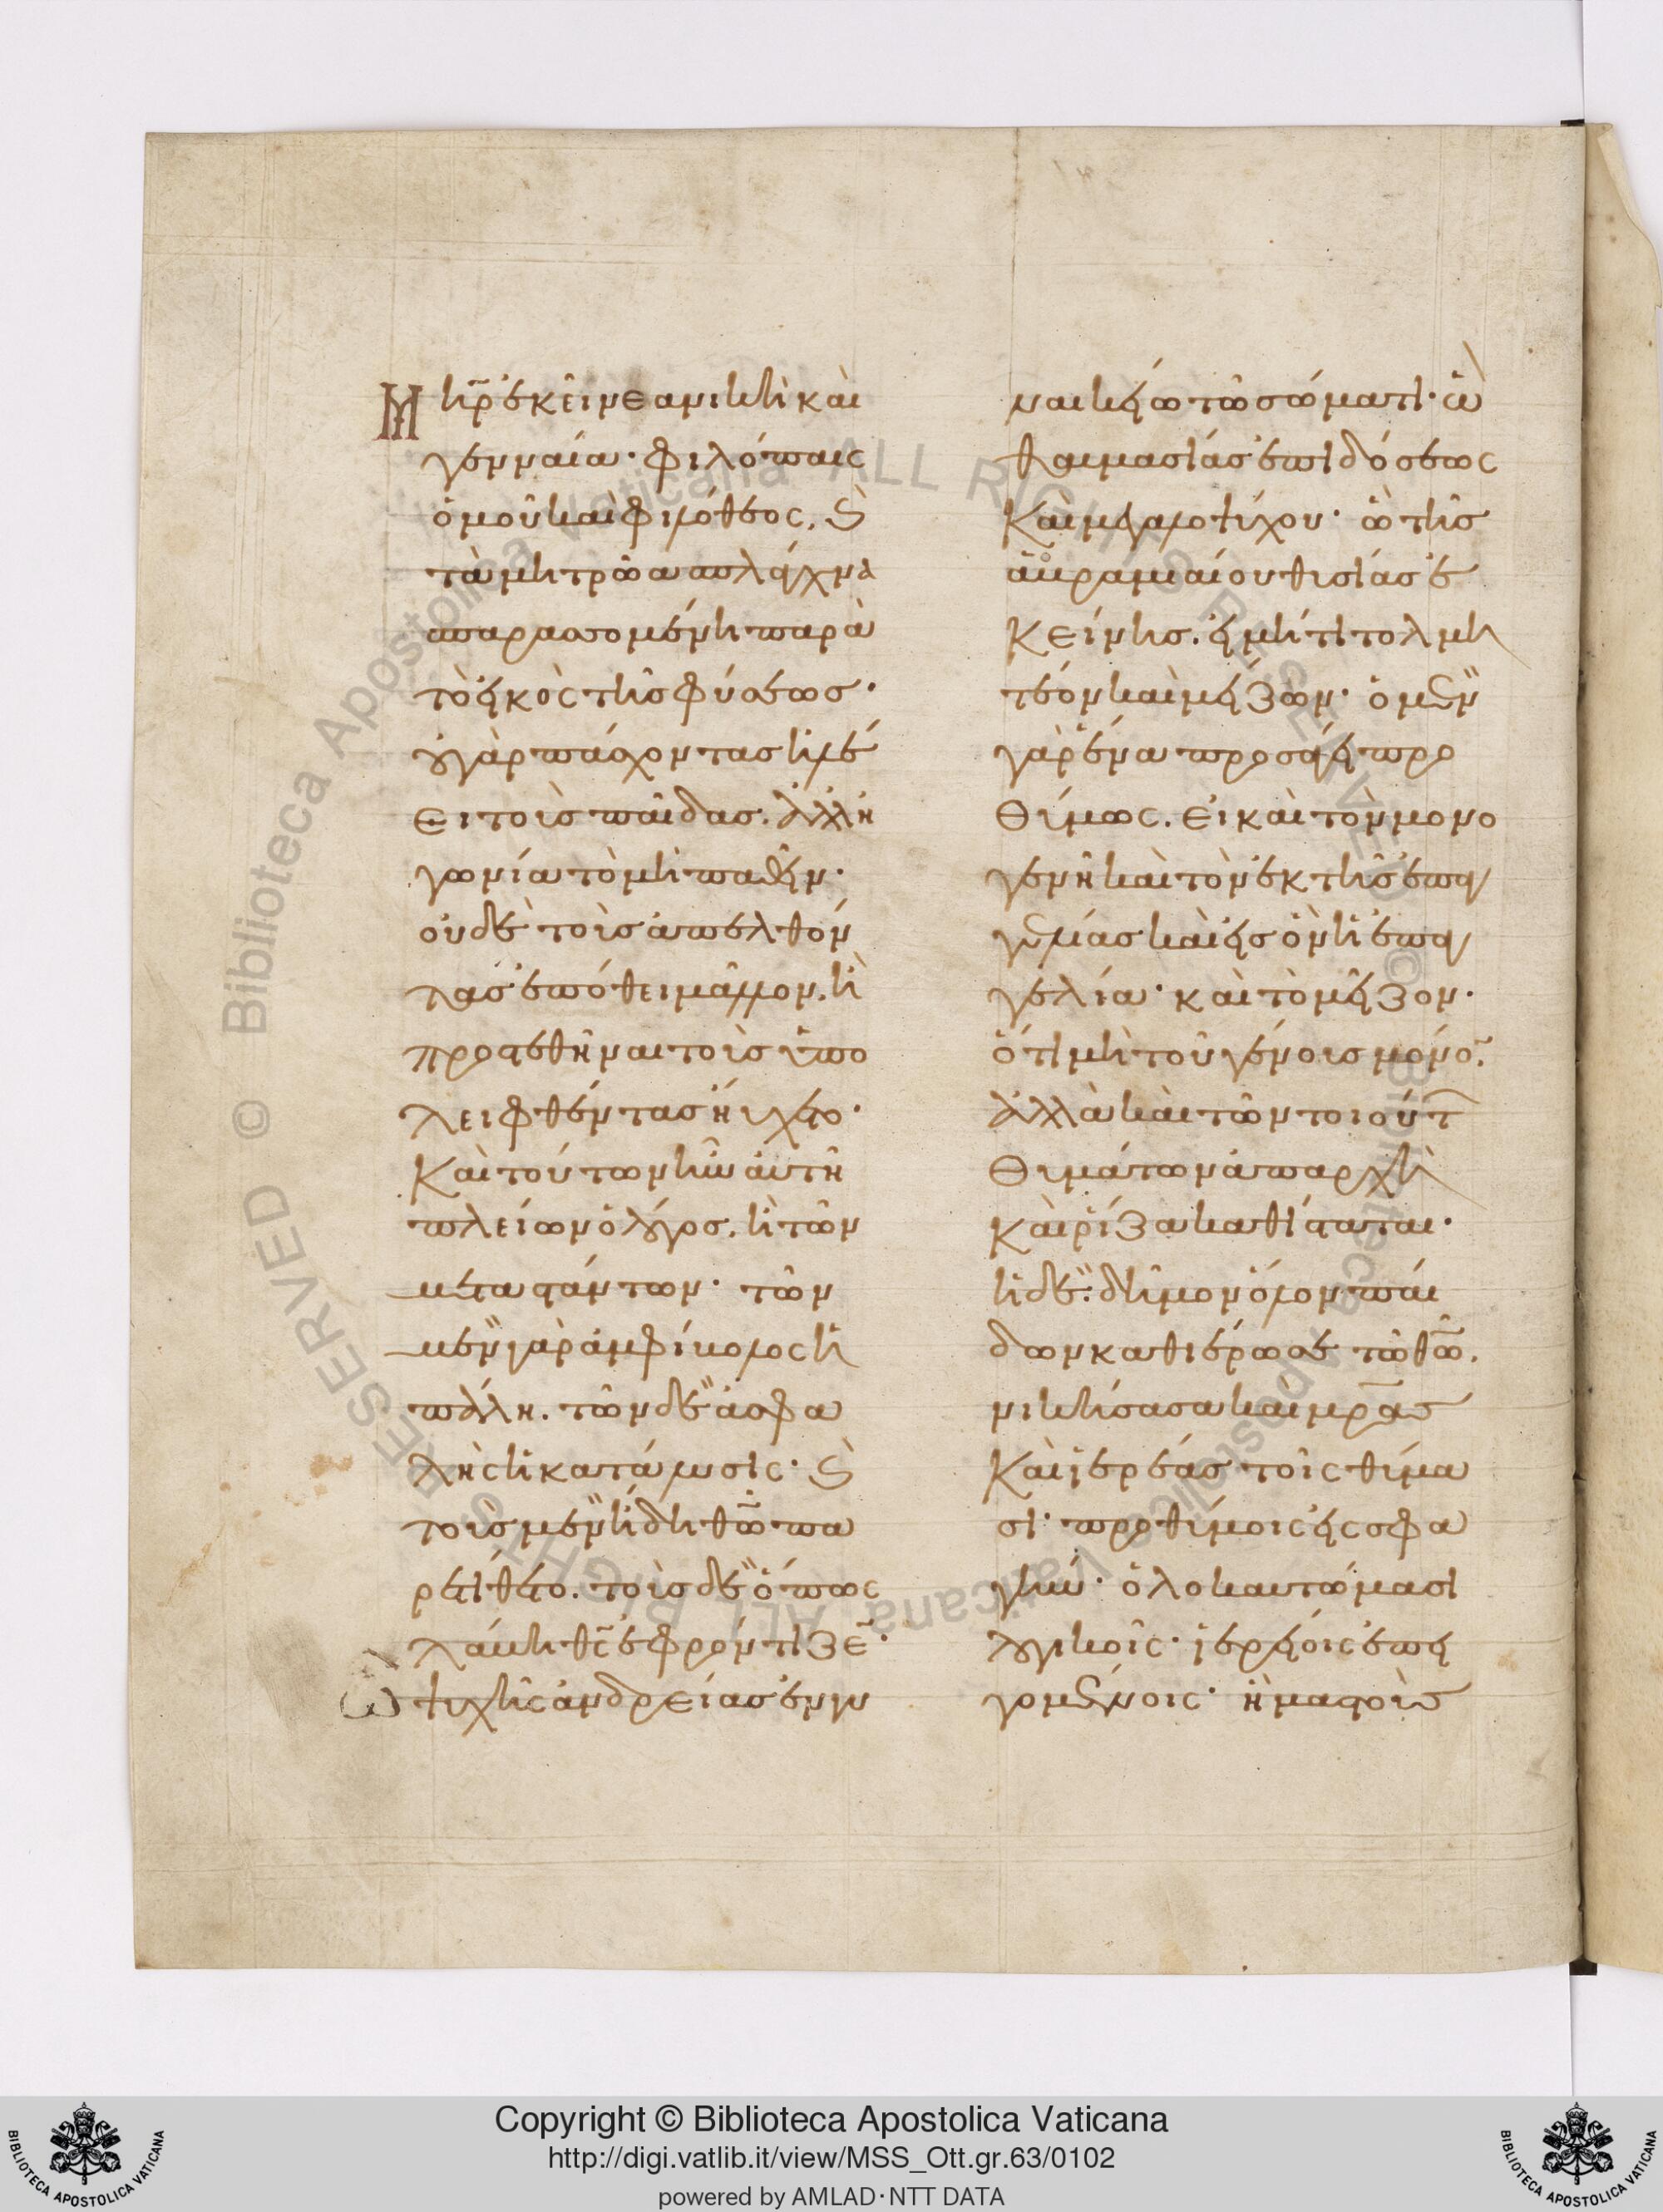 Μὴρ̄ ἐκείνε ανικὴ και
γενναία· φιλόπαις
ὁμοῦ καὶ φιλόθεος, ϗ
τὰ μητρῶα σπλάγχνα
σπαρασσομένη παρὰ
τὸ εἰκὸς τῆς φύσεως·
οὐ γὰρ πάσχοντας ἠλέ
ει τοὺς παῖδας. ἀλλ ἠ
γωνία τὸ μὴ παθεῖν·
οὐδὲ τοὺς ἀπελθόν
τας ἐπόθει μᾶλλον, ἢ
προστεθῆναι τοὺς ὑπο
λειφθέντας ηὔχετο·
Καὶ τούτων ἦν αὐτῆ
πλείων ὁ λόγος, ἢ τῶν
μεταστάντων· τῶν
μὲν γὰρ ἀμφίβολος ἡ
πάλη. τῶν δὲ ἀσφα
λὴς ἡ κατάλυσις· ϗ
τοὺς μὲν ἤδη θω̄ πα
ρετίθετο. τοὺς δὲ ὅπως
λάβη θς̄ ἐφρόντιζε̄·
Ὢ ψυχῆς ἀνδρείας ἐν γυ
ναικείω τῶ σώματι· ὢ
θαυμασίας ἐπιδόσεως
Καὶ μεγαλοψύχου· ὢ τῆς
ἀβραμιαίου θυσίας ἐ
Κείνης. εἰ μή τι τολμη
τέον καὶ μείζων· ὁ μὲν
γὰρ ἕνα προσάγει προ
Θύμως. εἰ καὶ τὸν μονο
γενῆ καὶ τὸν ἐκ τῆς ἐπαγ
γελίας καὶ εἰς ὃν ἡ ἐπαγ
γελία· καὶ τὸ μεῖζον·
ὅτι μὴ τοῦ γένους μόνο̄.
ἀλλὰ καὶ τῶν τοιούτ
Θυμάτων ἀπαρχὴ
Καὶ ῥίζα καθίσταται·
ἡ δὲ δῆμον ὅλον παί
δων καθιέρωσε τῶ θω̄.
νικήσασα καὶ μρ̄ας
Καὶ ἱερέας τοῖς θύμα
σι· προθύμοις εἰς σφα
γὴν· ὁλοκαυτώμασι
λογικοῖς· ἱερείοις ἐπει
γομένοις· ἡ μαστοὺς